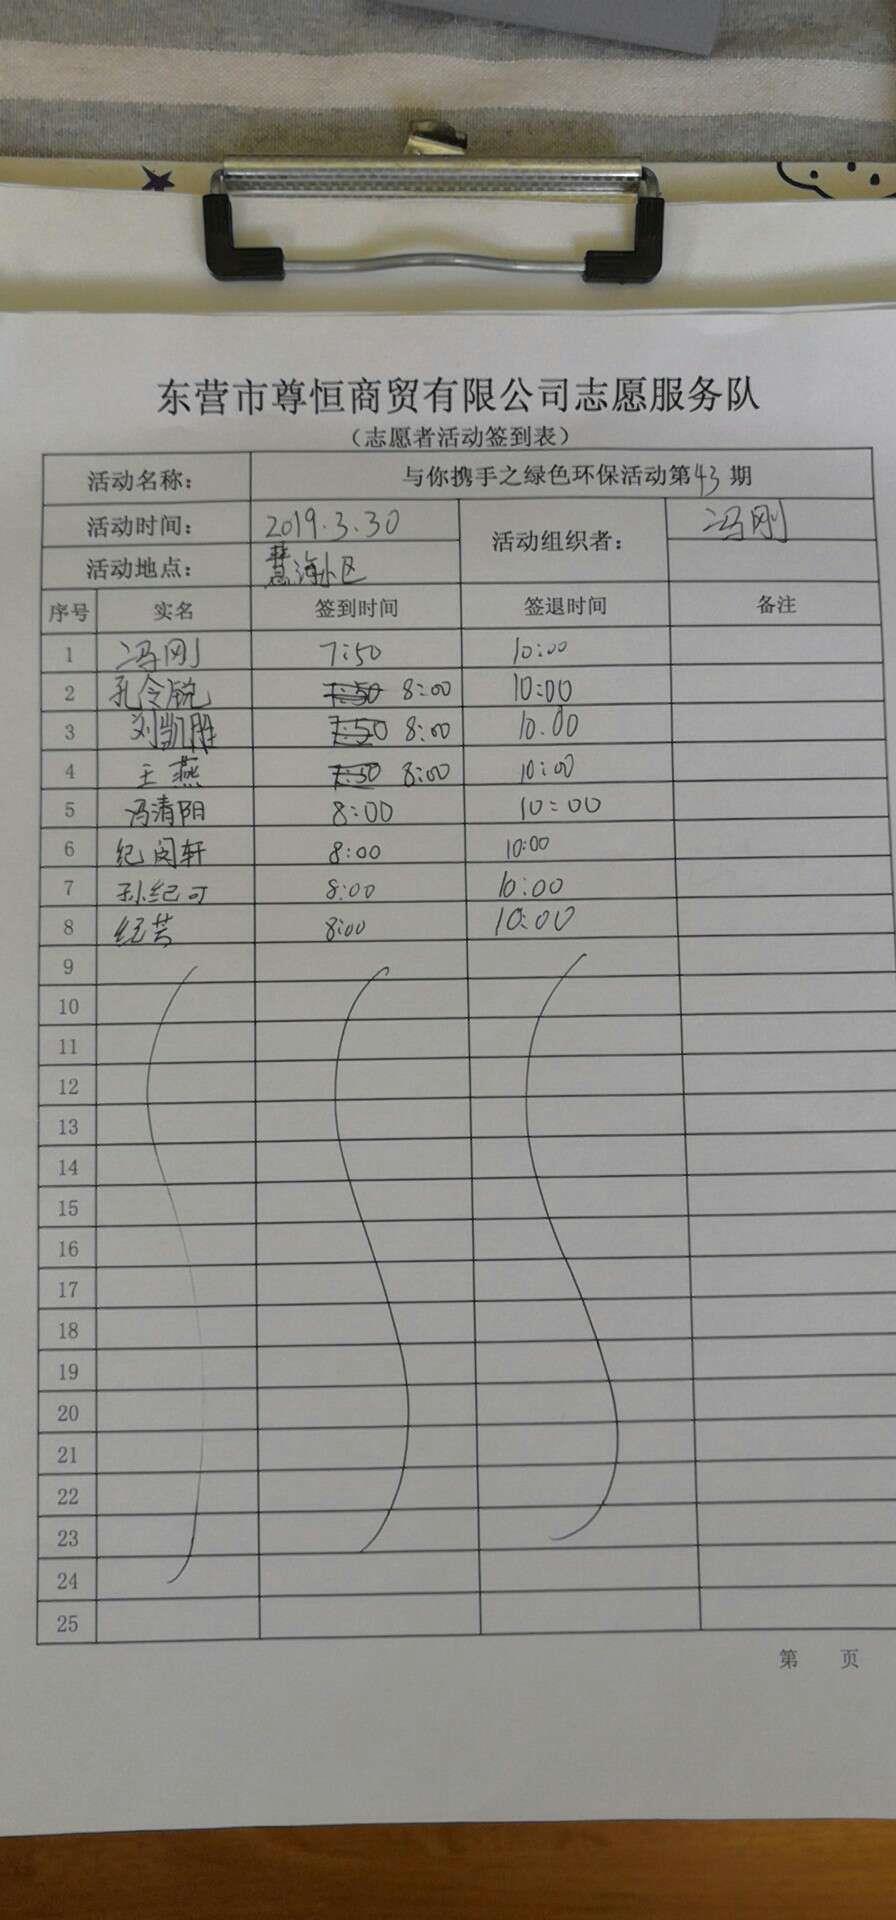 东营市尊恒商贸有限公司志愿服务队
（志愿者活动签到表）
活动名称： 与你携手之绿色环保活动第43期
活动时间： 2019.3.30 活动组织者： 冯刚
活动地点： 慧海小区
序号 实名 签到时间 签退时间 备注
1 冯刚 7:50 10:00
2 孔令锐 7:50 8:00 10:00
3 刘凯胜 7:50 8:00 10.00
4 王燕 7:50 8:00 10:00
5 冯清阳 8:00 10:00
6 纪闵轩 8:00 10:00
7 孙纪可 8:00 10:00
8 纪芸 8:00 10:00
9
10
11
12
13
14
15
16
17
18
19
20
21
22
23
24
25
第 页